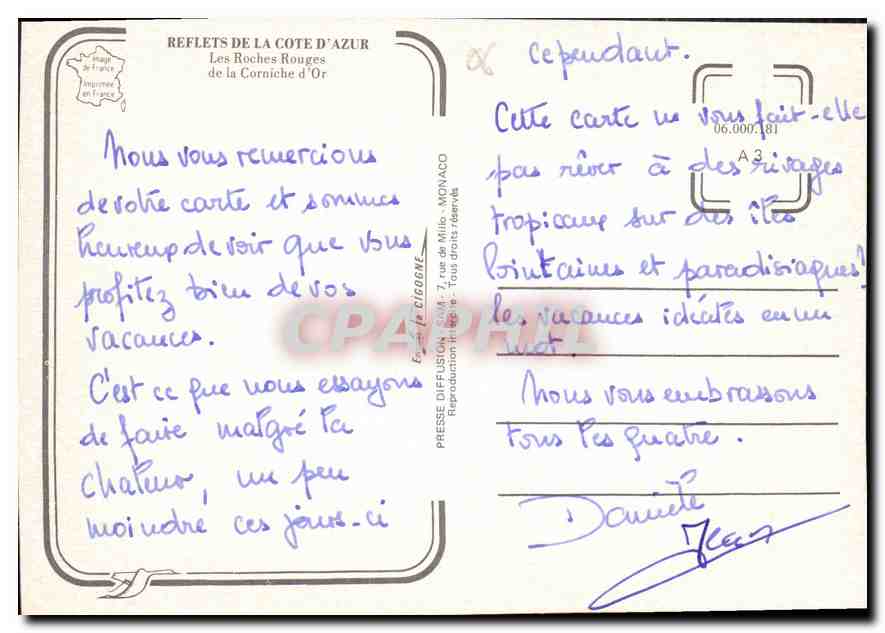 REFLETS DE LA COTE D'AZUR
Les Roches Rouges
de la Corniche d'Or
Image
de France
Imprimée
en France
Nous vous remercions
de votre carte et sommes
heureux de voir que vous
profitez bien de vos
vacances.
C'est ce que nous essayons
de faire malgré la
chaleur, un peu
moindre ces jours-ci
PRESSE DIFFUSION SAM - 7, rue de Millo - MONACO
Reproduction interdite - Tous droits réservés
la CIGOGNE
CPAPHIL
cependant.
06.000.181
A 3
Cette carte ne vous fait-elle
pas rêver à des rivages
tropicaux sur des îles
lointaines et paradisiaques!
les vacances idéales en un
mot.
Nous vous embrassons
tous les quatre.
Danièle
Jean